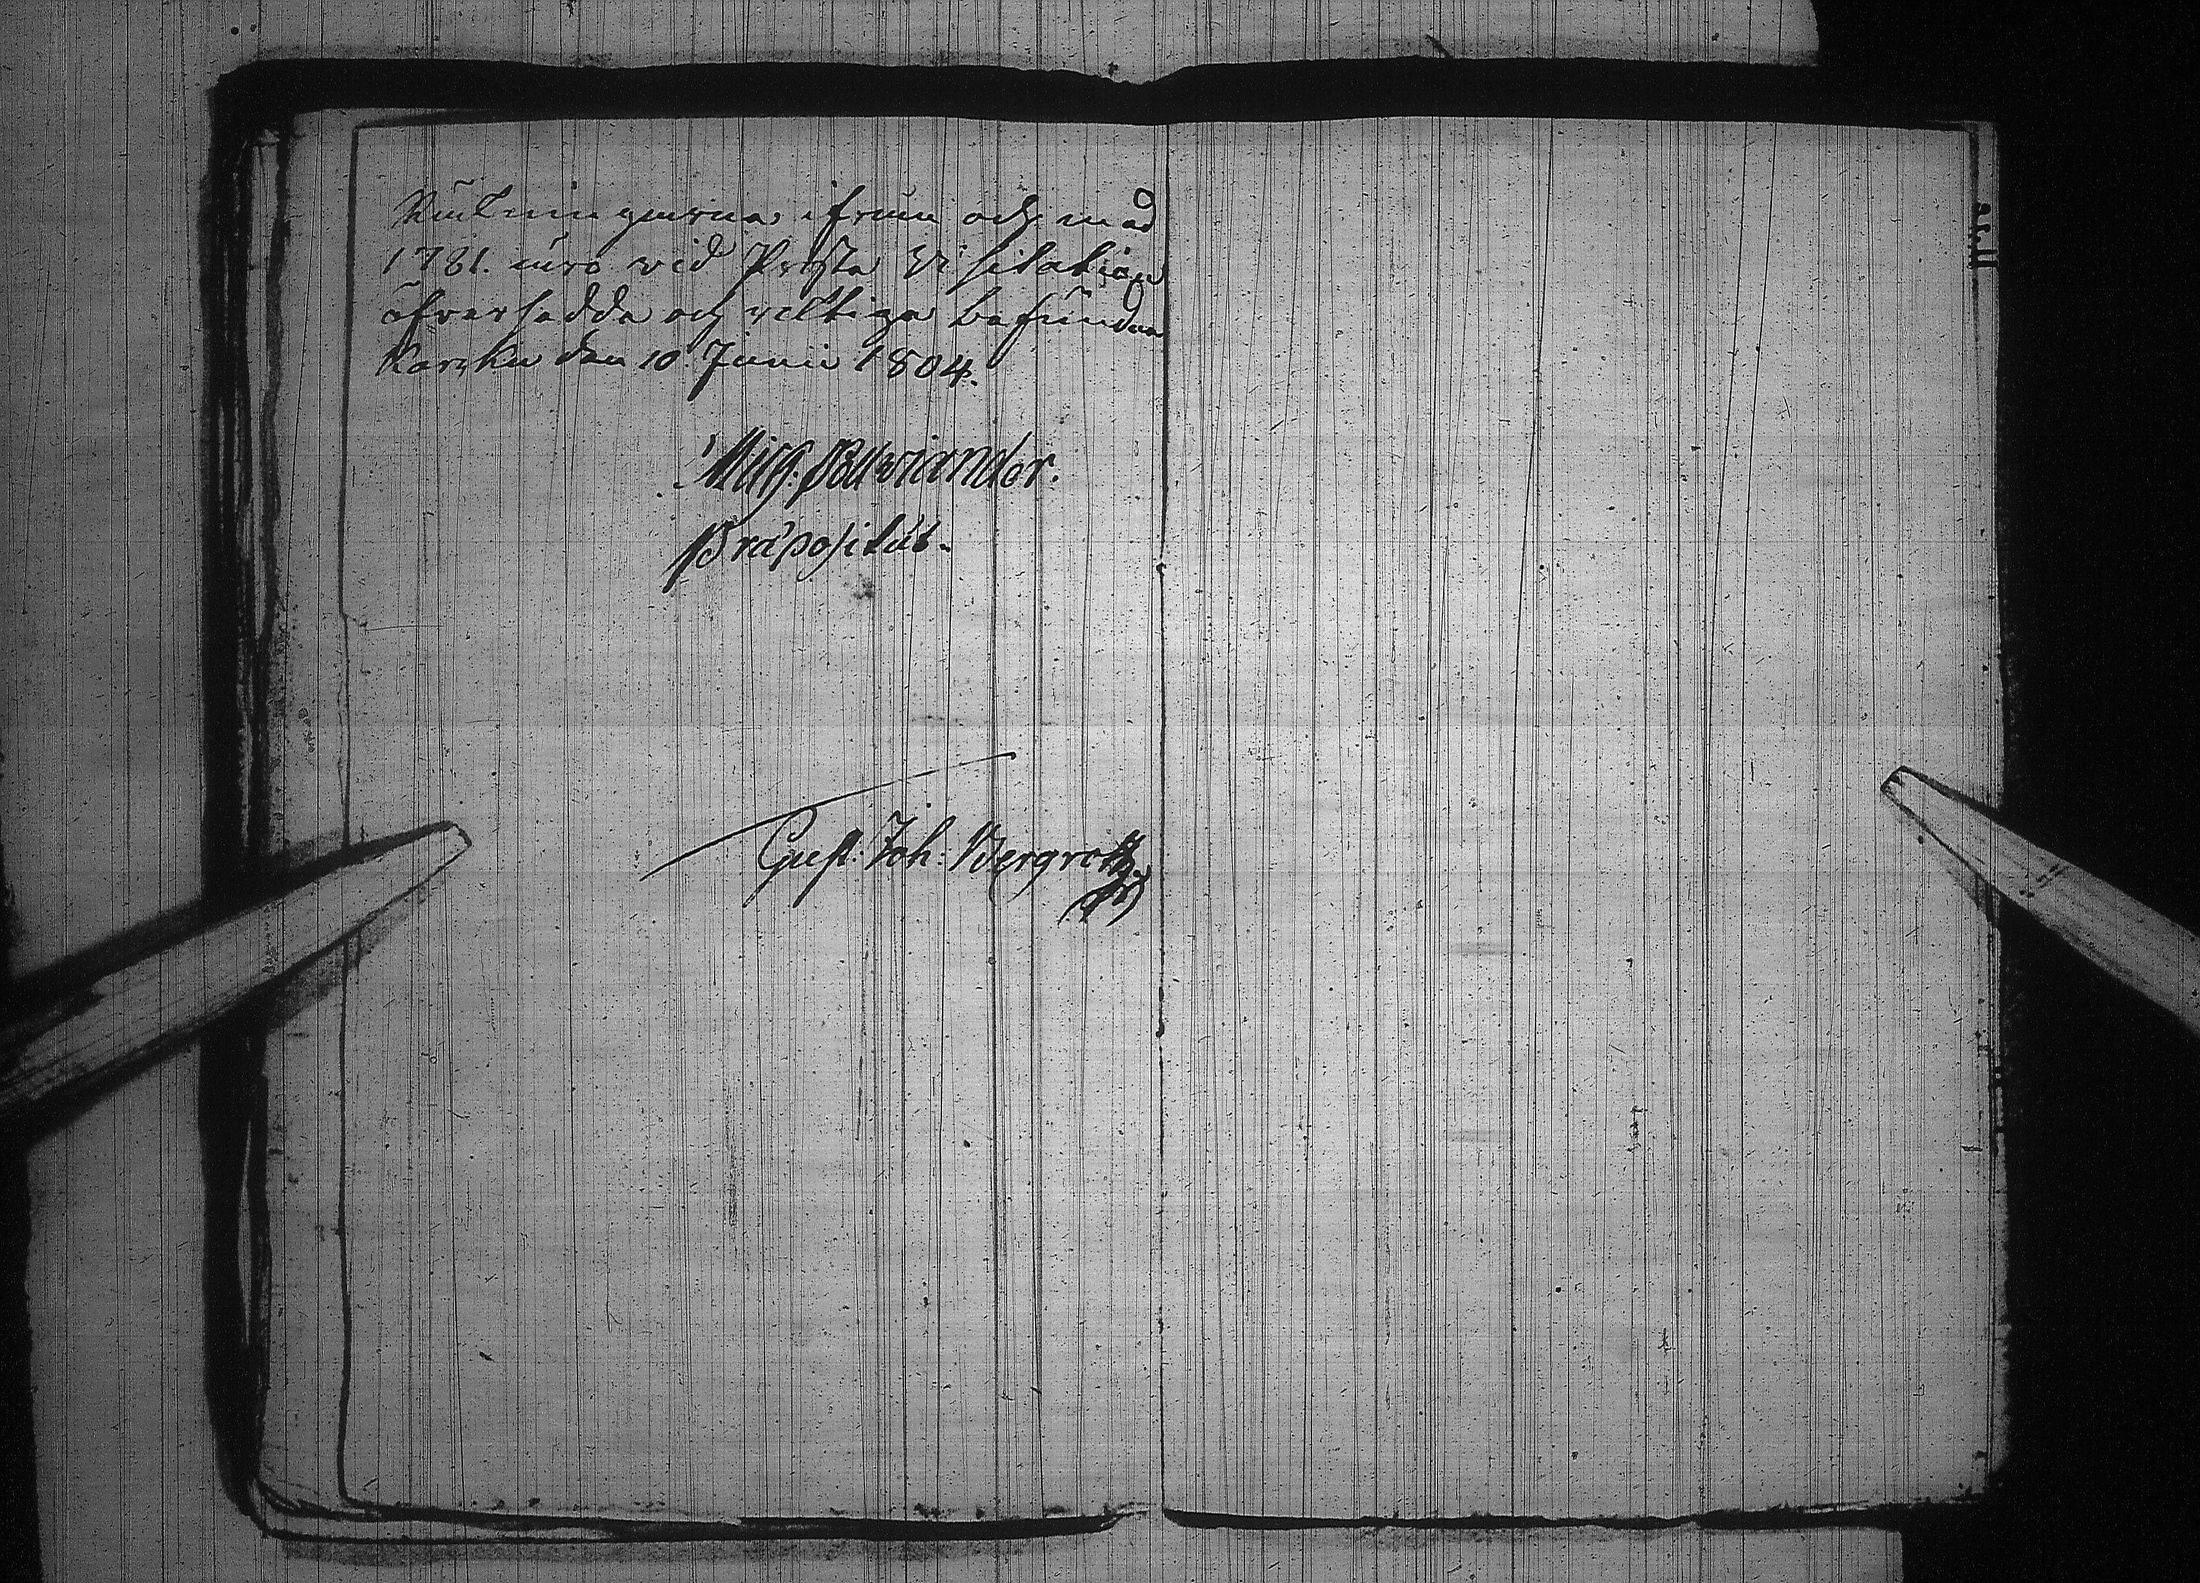 Räkningarna ifrån och med
1781. äro vid Prosta Visitation
öfversedde och ricktiga befundna
Karku den 10 Junii 1804.
Mich. Polviander.
Præpositus.
Gust. Joh: Bergroth